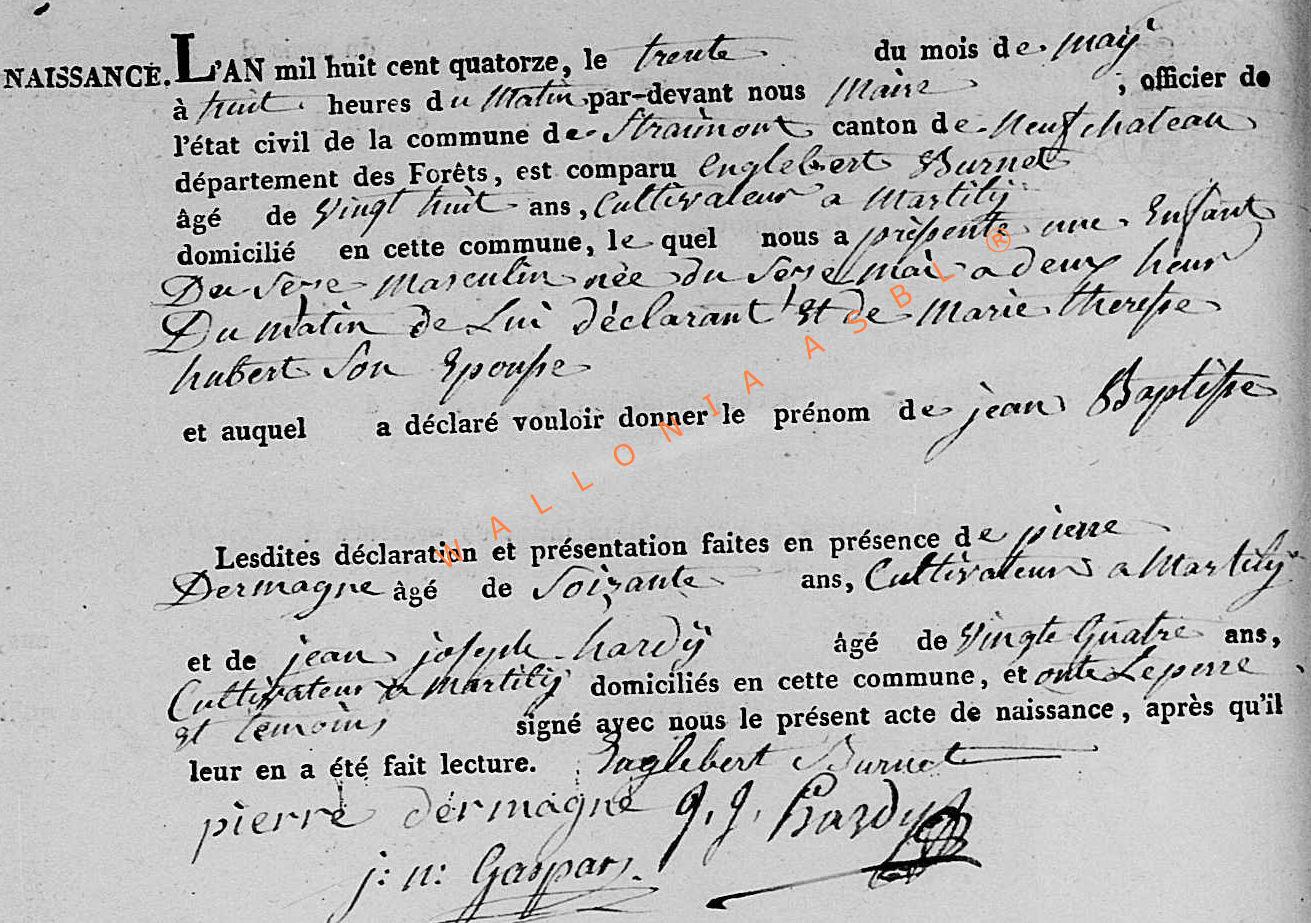 NAISSANCE. L'AN mil huit cent quatorze, le trente du mois de maÿ
à huit heures du Matin par-devant nous Maire ; officier de
l'état civil de la commune de Straimont canton de Neufchateau
département des Forêts, est comparu Englebert Burnet
âgé de Vingt huit ans, Cultivateur a Martilÿ
domicilié en cette commune, le quel nous a présenté une Enfant
Du Sexe Masculin née du Sexe mai a deux heur
Du matin de Lui déclarant Et de Marie therese
hubert Son Epouse
et auquel a déclaré vouloir donner le prénom de jean Baptiste
Lesdites déclaration et présentation faites en présence de pierre
Dermagne âgé de Soixante ans, Cultivateur a Martilÿ
et de jean joseph hardÿ âgé de Vingte Quatre ans,
Cultivateur a Martilÿ domiciliés en cette commune, et onte Le perre
et temoins signé avec nous le présent acte de naissance, après qu'il
leur en a été fait lecture. Englebert Burnet
pierre dermagne J. J. Hardy
j: n: Gaspar
WALLONIA ASBL ®